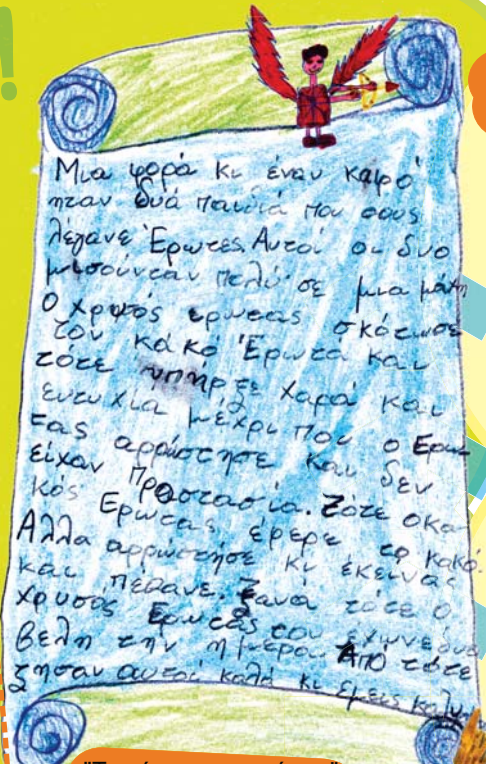 !
Μια φορά κι έναν καιρό
ηταν δυό παιδιά που τους
λέγανε Έρωτες. Αυτοί οι δυο
μισούνταν πολύ σε μια μάχη
Ο χρυσός ερωτας σκότωσε
τον κακό Έρωτα και
τότε υπήρξε χαρά και
ευτυχία μέχρι που ο Ερω
τας αρρώστησε και δεν
είχαν Προστασία. Τότε ο κα
κός Ερωτας έφερε το κακό.
Αλλα αρρώστησε κι εκείνος
και πέθανε. Ξανά τότε ο
χρυσός Ερωτας του έχωνε δυο
βελη την ημέρα. Από τότε
ζησαν αυτοί καλά κι εμείς